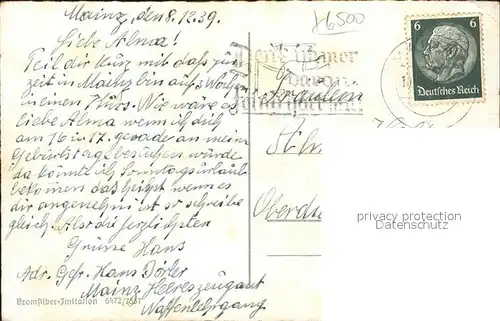 Mainz, den 8.12.39.
Liebe Alma!
Teil dir kurz mit daß zur
zeit in Mainz bin auf 3 Wochen
in einen Kurs. Wie wäre es
liebe Alma wenn ich dich
am 16 u 17. gerade an meine
Geburtstag besuchen würde
da könnte ich Sonntagsurlaub
bekommen das heißt wenn es
dir angenehm ist so schreibe
gleich. Also die herzlichsten
Grüsse Hans
Adr. Gefr. Hans Dörler
Mainz Hereszeugamt
Waffenlehrgang
Bromsilber-Imitation
±6500
6 6
Deutsches Reich
Fräulein
privacy protection
Datenschutz